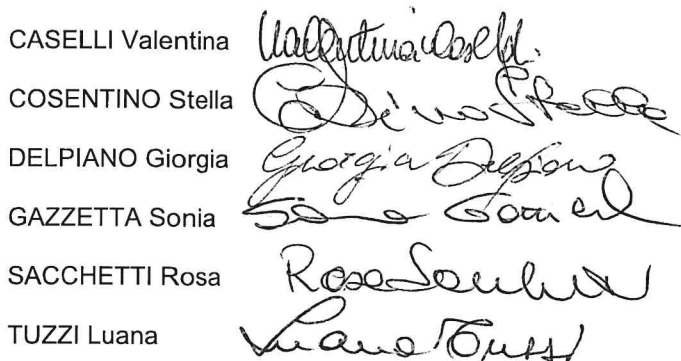 CASELLI Valentina Valentina Caselli
COSENTINO Stella Cosentino Stella
DELPIANO Giorgia Giorgia Delpiano
GAZZETTA Sonia Sonia
SACCHETTI Rosa Rosa Sacchetti
TUZZI Luana Luana Tuzzi